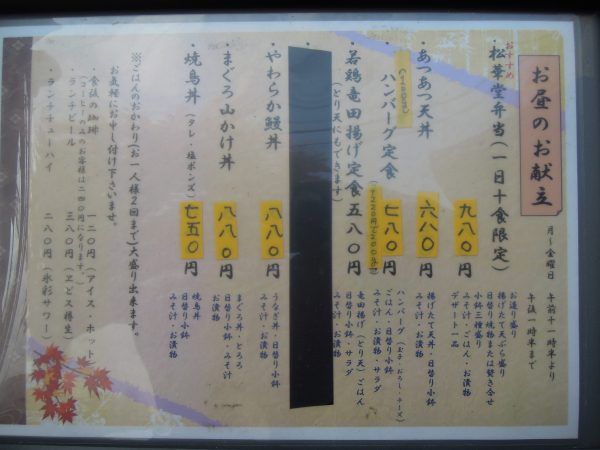 お昼のお献立
月～金曜日
午前十一時半より
午後一時半まで
おすすめ
・松華堂弁当(一日十食限定)
九八〇円
お造り盛り
揚げたて天ぷら盛り
日替り焼物または焚き合せ
小鉢三種盛り
みそ汁・ごはん・お漬物
デザート一品
・あつあつ天丼
六八〇円
揚げたて天丼・日替り小鉢
みそ汁・お漬物
・ハンバーグ定食
七八〇円
ハンバーグ(玉子・おろし・チーズ)
ごはん・日替り小鉢
みそ汁・お漬物・サラダ
・若鶏竜田揚げ定食
五八〇円
(とり天にもできます)
竜田揚げ(とり天)ごはん
日替り小鉢・サラダ
みそ汁・お漬物
・やわらか鰻丼
八八〇円
うなぎ丼・日替り小鉢
みそ汁・お漬物
・まぐろ山かけ丼
八八〇円
まぐろ丼・とろろ
日替り小鉢・みそ汁
お漬物
・焼鳥丼(タレ・塩ポンズ)
七五〇円
焼鳥丼
日替り小鉢
みそ汁・お漬物
※ごはんのおかわり(お一人様2回まで)大盛り出来ます。
お気軽にお申し付け下さいませ。
・食後の珈琲
一二〇円(アイス・ホット)
(コーヒーのみのお客様は二四〇円になります。)
・ランチビール
三八〇円(ヱビス樽生)
・ランチチューハイ
二八〇円(氷彩サワー)